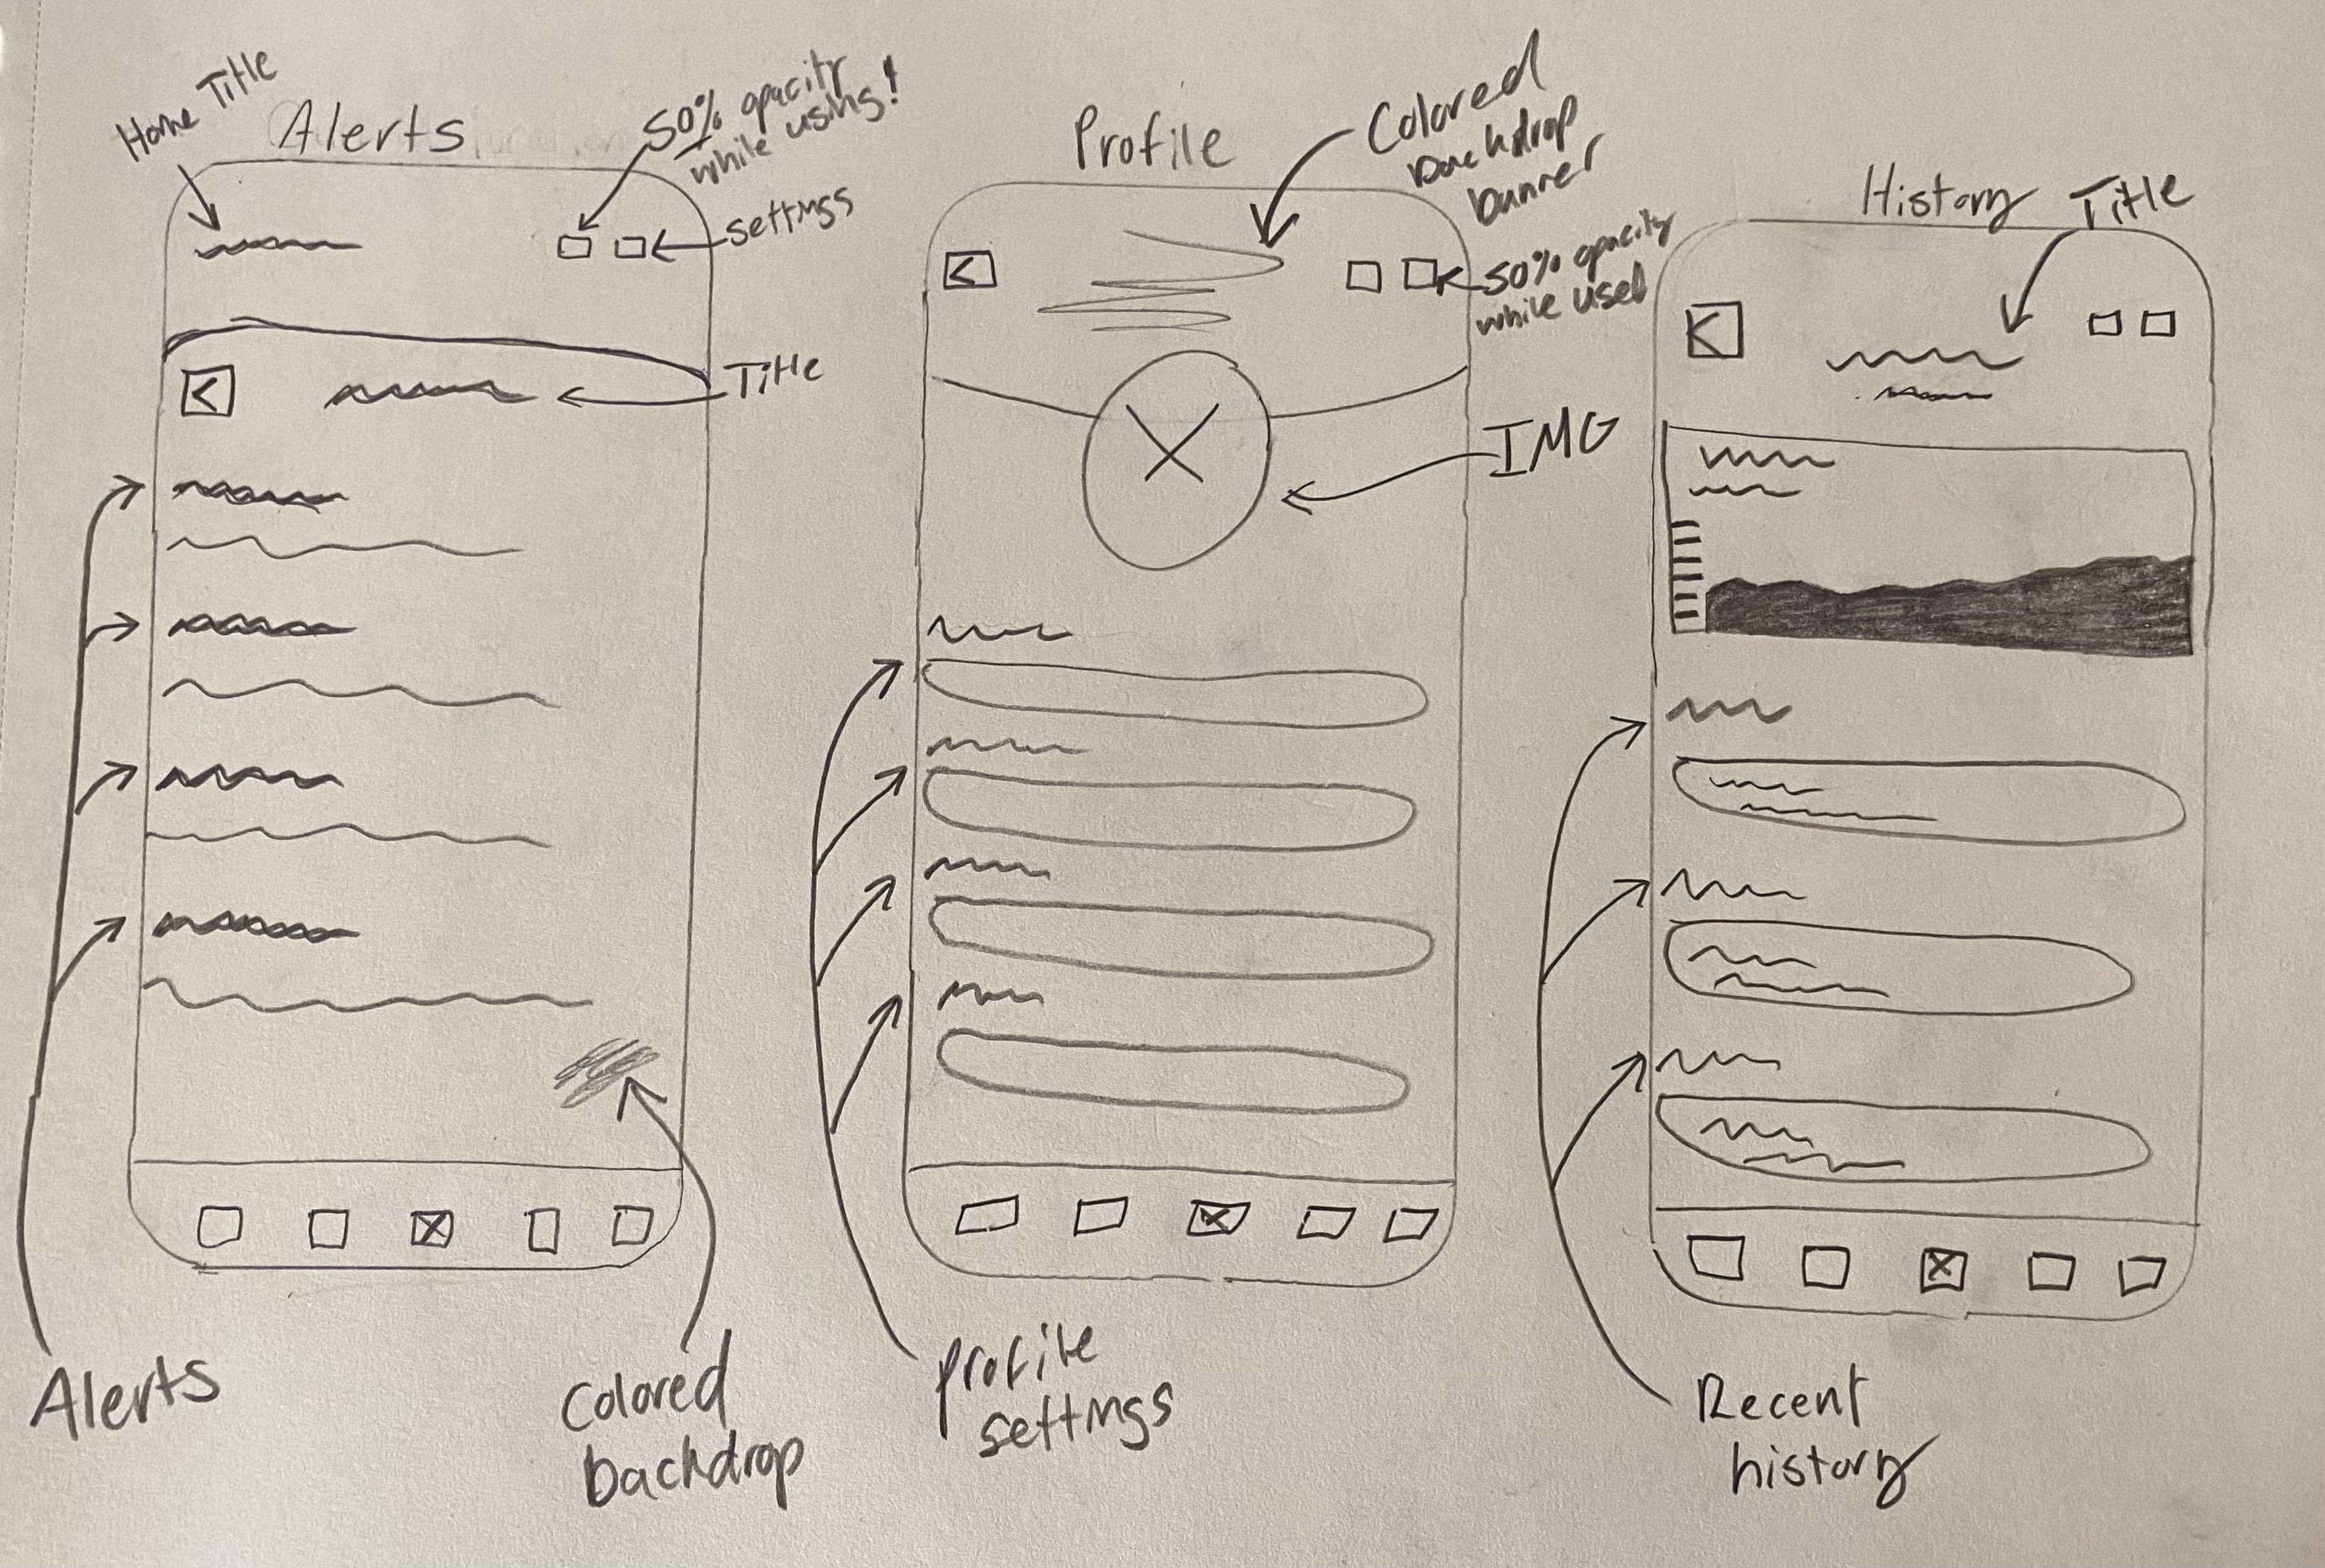 Home Title
Alerts
50% opacity
while using!
settings
Title
Alerts
Colored
backdrop
Profile
Colored
backdrop
banner
50% opacity
while used
IMG
Profile
settings
History
Title
Recent
history